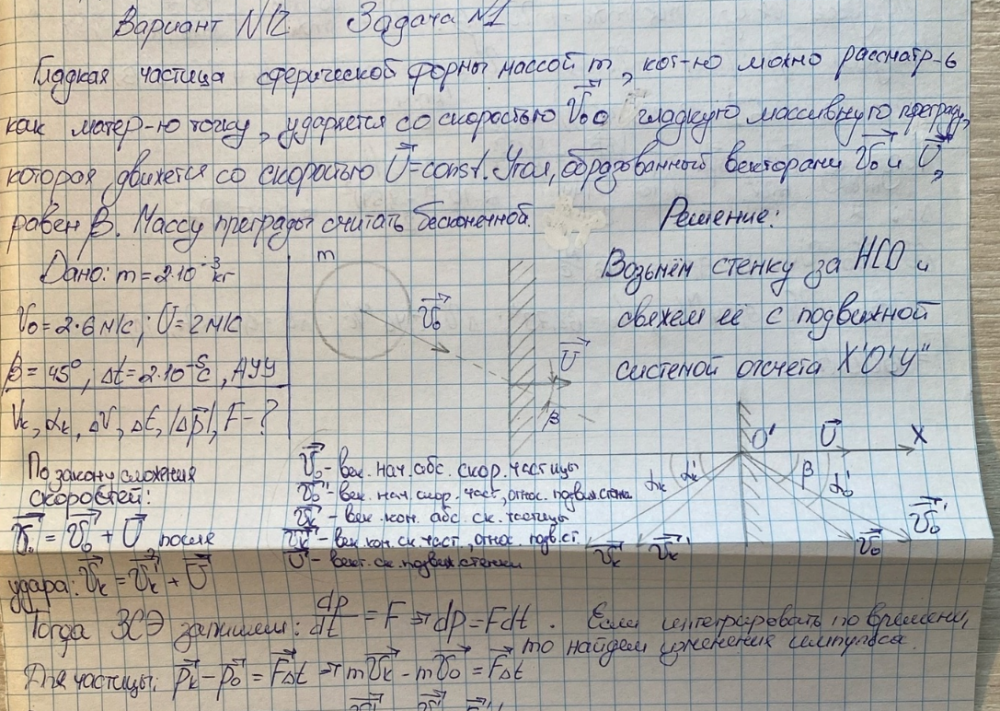 Вариант N12 Задача N1
Гладкая частица сферической формы массой m, кот-ю можно рассматр-ь
как матер-ю точку, ударяется со скоростью V₀ о гладкую массивную преграду,
которая движется со скоростью U=const. Угол, образованный векторами V₀ и U,
равен β. Массу преграды считать бесконечной.
Решение:
Дано: m = 2·10⁻³ кг
V₀ = 2·6 м/с; U = 2 м/с
β = 45°, Δt = 2·10⁻⁵ с, АУУ
Vк, αк, ΔV, Δε, |Δp|, F - ?
m
V₀
U
β
Возьмём стенку за НСО и
свяжем её с подвижной
системой отсчёта X'O'Y"
O' U X
αк αк' β α₀'
Vк Vк' V₀ V₀'
По закону сложения
скоростей:
V₀ = V₀' + U после
удара: Vк = Vк' + U
V₀ - век. нач. абс. скор. частицы
V₀' - век. нач. скор. част, относ. подвиж стены
Vк - век. кон. абс. ск. частицы
Vк' - век кон. ск част, относ. подв. ст
U - вект. ск. подвиж стенки
Тогда ЗСЭ запишем: dp/dt = F ⇒ dp = Fdt. Если интегрировать по времени,
то найдём изменение импульса.
Для частицы: pк - p₀ = FΔt ⇒ mVк - mV₀ = FΔt